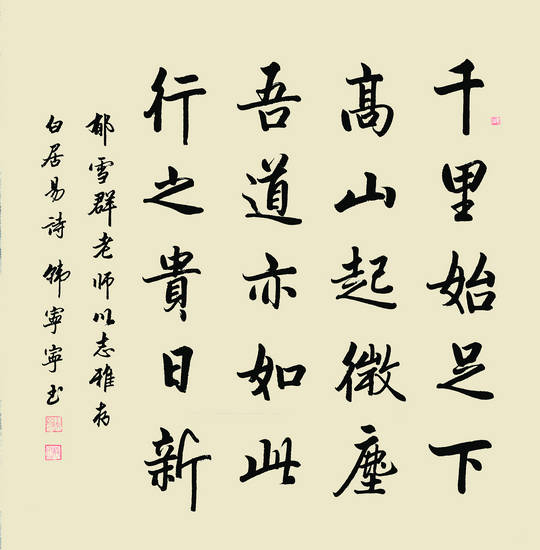 千里始足下
高山起微塵
吾道亦如此
行之貴日新
郁雪群老師以志雅存
白居易詩 韩寧寧书